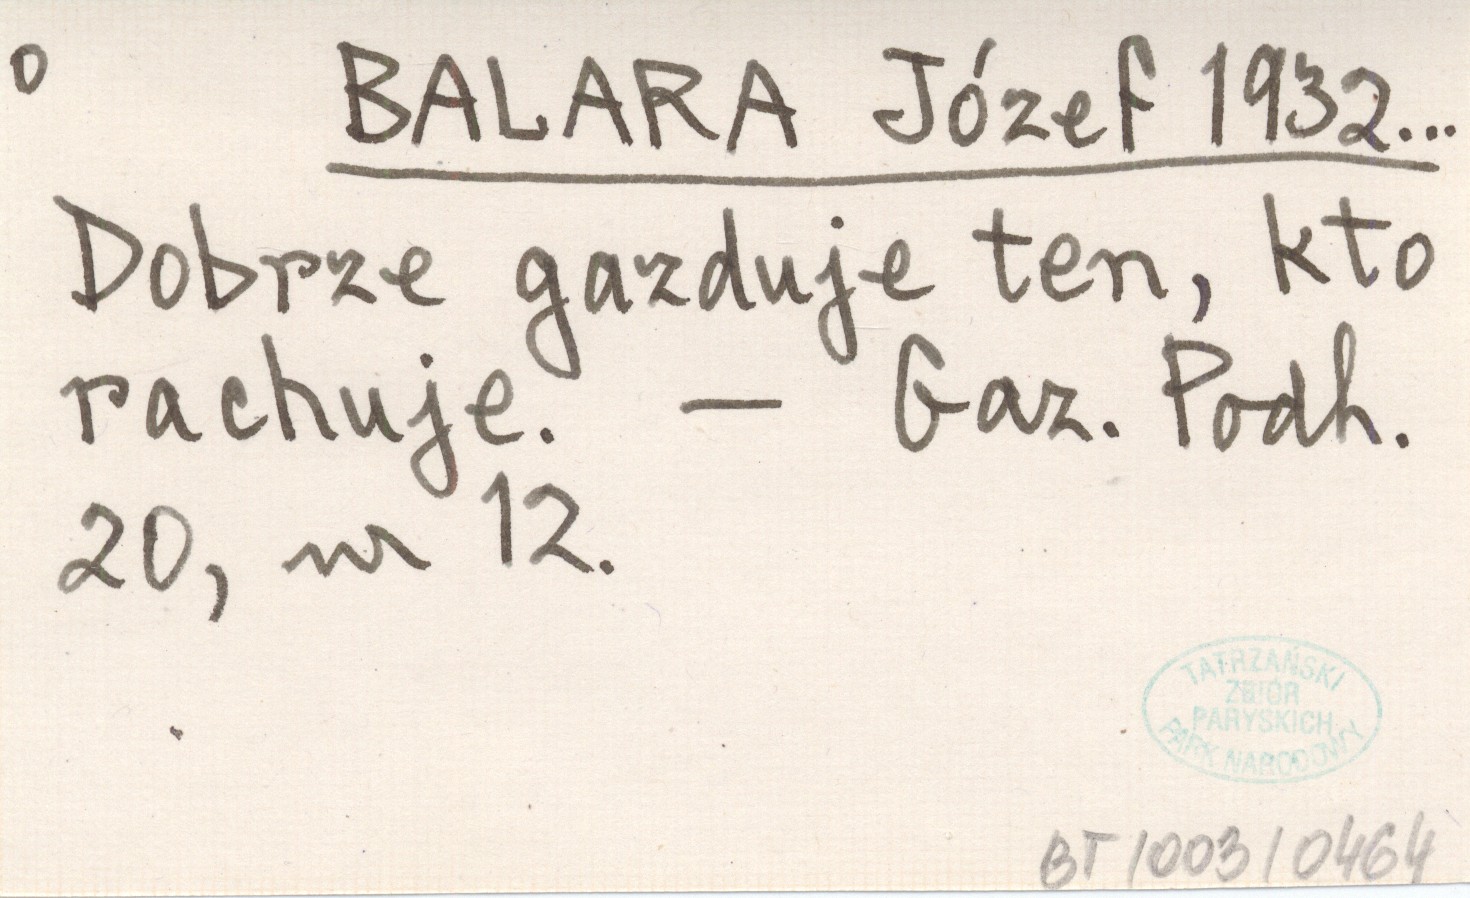 o BALARA Józef 1932...
Dobrze gazduje ten, kto
rachuje. — Gaz. Podh.
20, nr 12.
TATRZAŃSKI
ZBIÓR
PARYSKICH
PARK NARODOWY
BT/003/0464